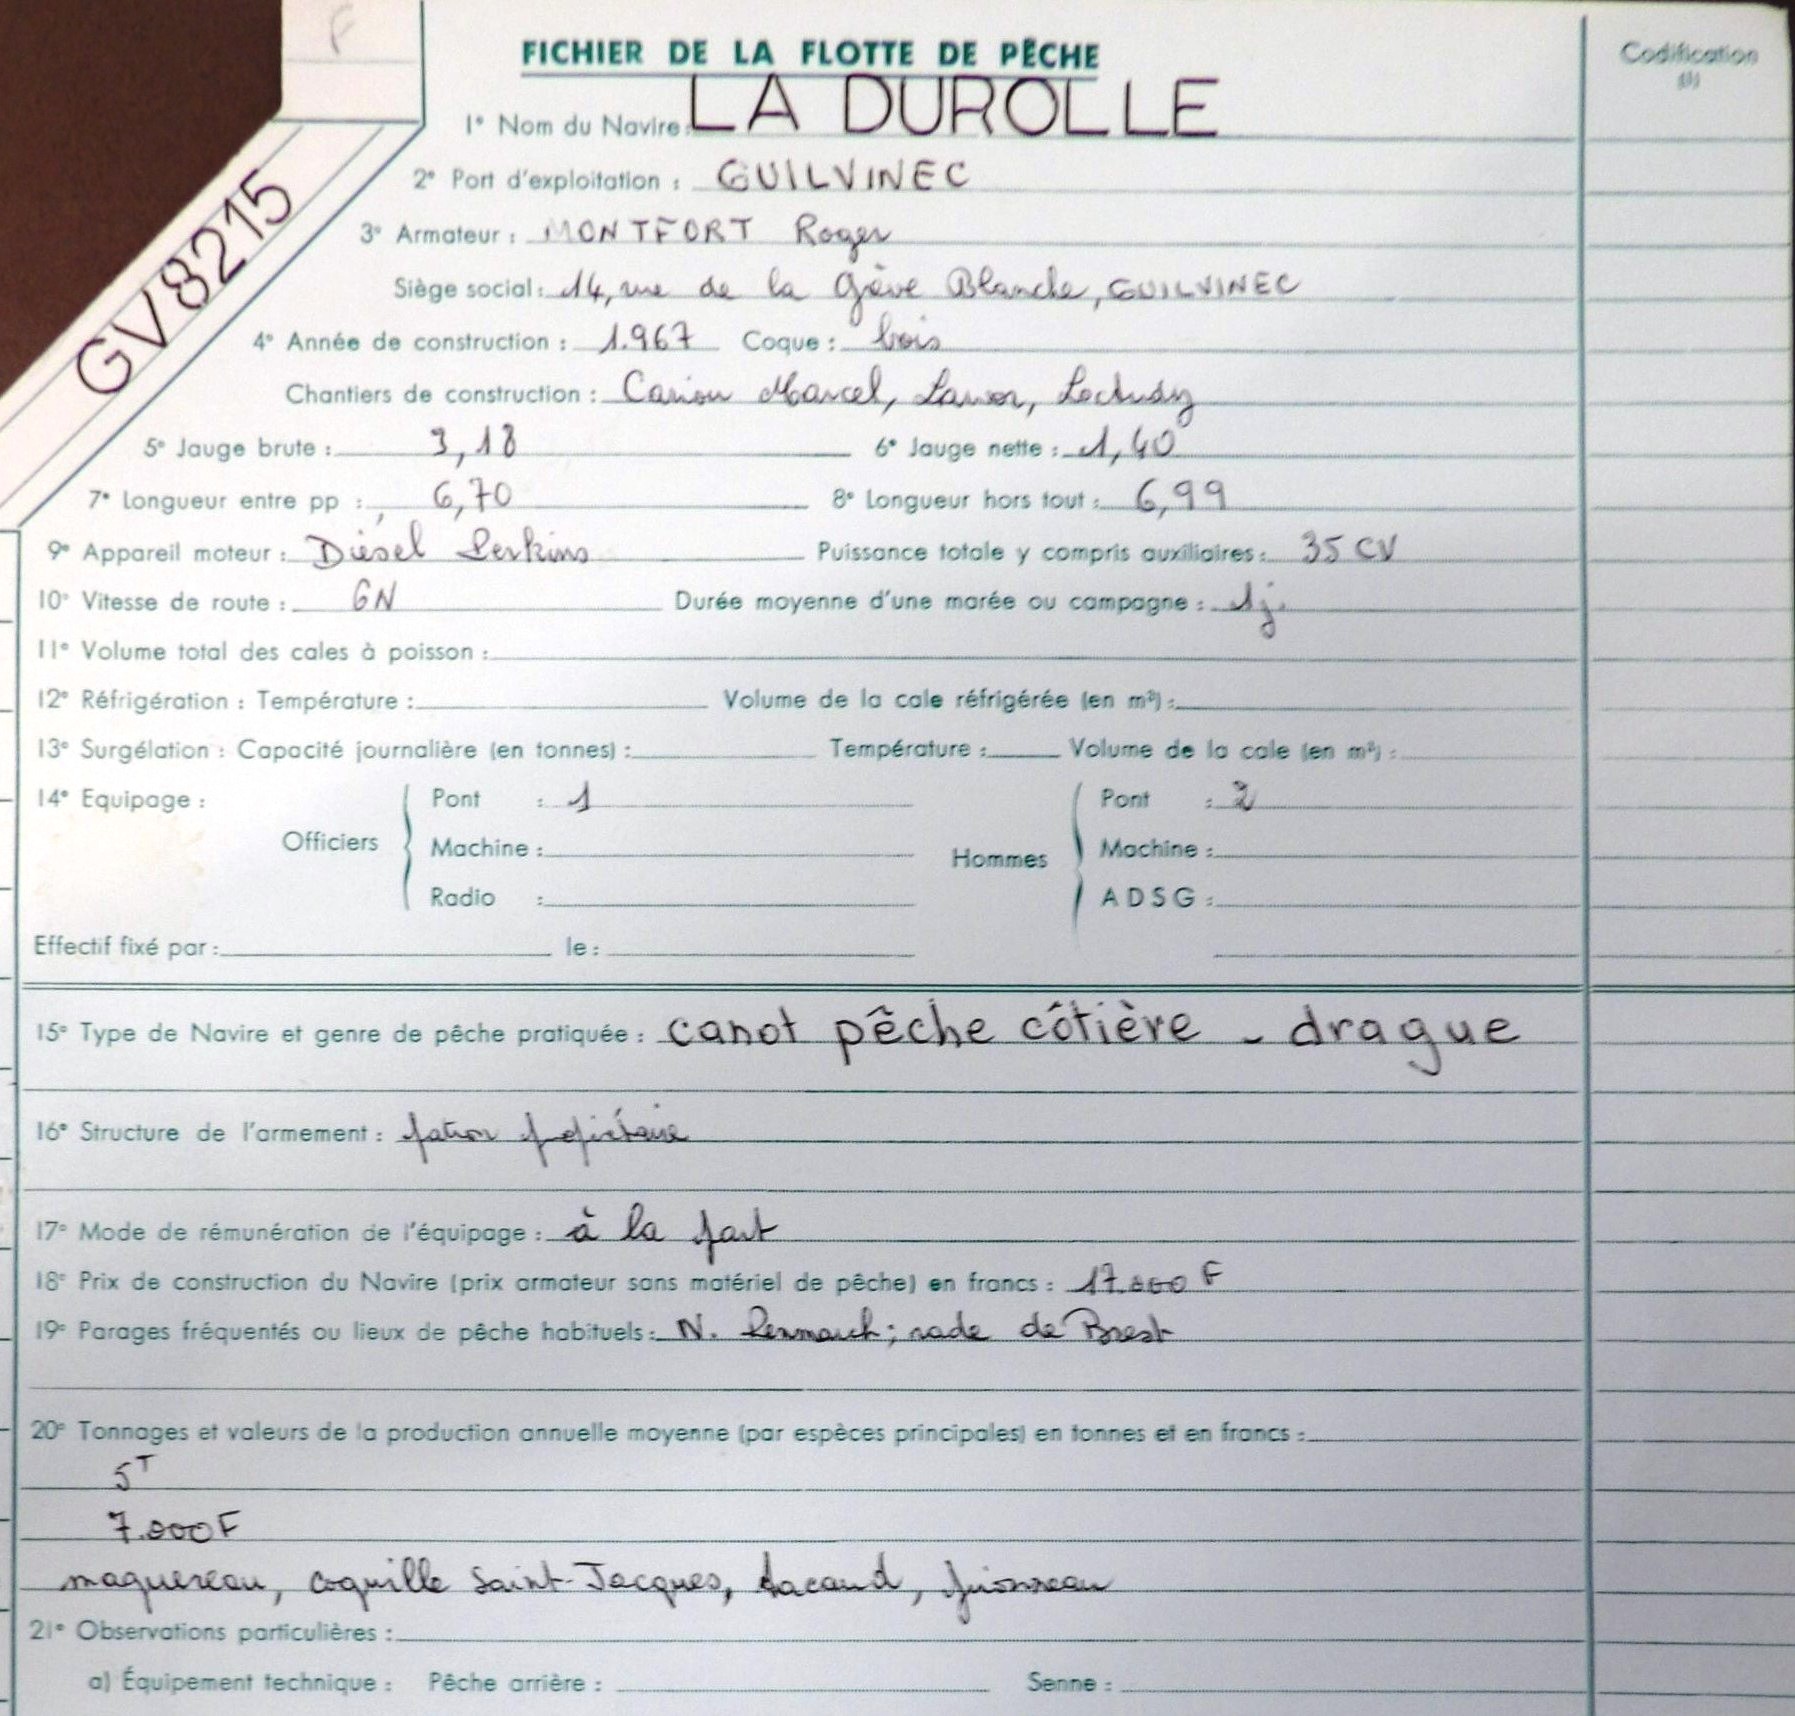 F
FICHIER DE LA FLOTTE DE PÊCHE
Codification
(1)
GV8215
1° Nom du Navire : LA DUROLLE
2° Port d'exploitation : GUILVINEC
3° Armateur : MONTFORT Roger
Siège social : 14, rue de la Grève Blanche, GUILVINEC
4° Année de construction : 1.967 Coque : bois
Chantiers de construction : Cariou Marcel, Lavor, Loctudy
5° Jauge brute : 3,18 6° Jauge nette : 1,40
7° Longueur entre pp : 6,70 8° Longueur hors tout : 6,99
9° Appareil moteur : Diésel Perkins Puissance totale y compris auxiliaires : 35 CV
10° Vitesse de route : 6N Durée moyenne d'une marée ou campagne : 1j.
11° Volume total des cales à poisson :
12° Réfrigération : Température : Volume de la cale réfrigérée (en m³) :
13° Surgélation : Capacité journalière (en tonnes) : Température : Volume de la cale (en m³) :
14° Equipage : Pont : 1 Pont : 2
Officiers Machine : Hommes Machine :
Radio : ADSG :
Effectif fixé par : le :
15° Type de Navire et genre de pêche pratiquée : canot pêche côtière - drague
16° Structure de l'armement : patron propriétaire
17° Mode de rémunération de l'équipage : à la part
18° Prix de construction du Navire (prix armateur sans matériel de pêche) en francs : 17.000 F
19° Parages fréquentés ou lieux de pêche habituels : N. Penmarch ; rade de Brest
20° Tonnages et valeurs de la production annuelle moyenne (par espèces principales) en tonnes et en francs :
5T
7.000F
maquereau, coquille Saint-Jacques, tacaud, pironneau
21° Observations particulières :
a) Équipement technique : Pêche arrière : Senne :